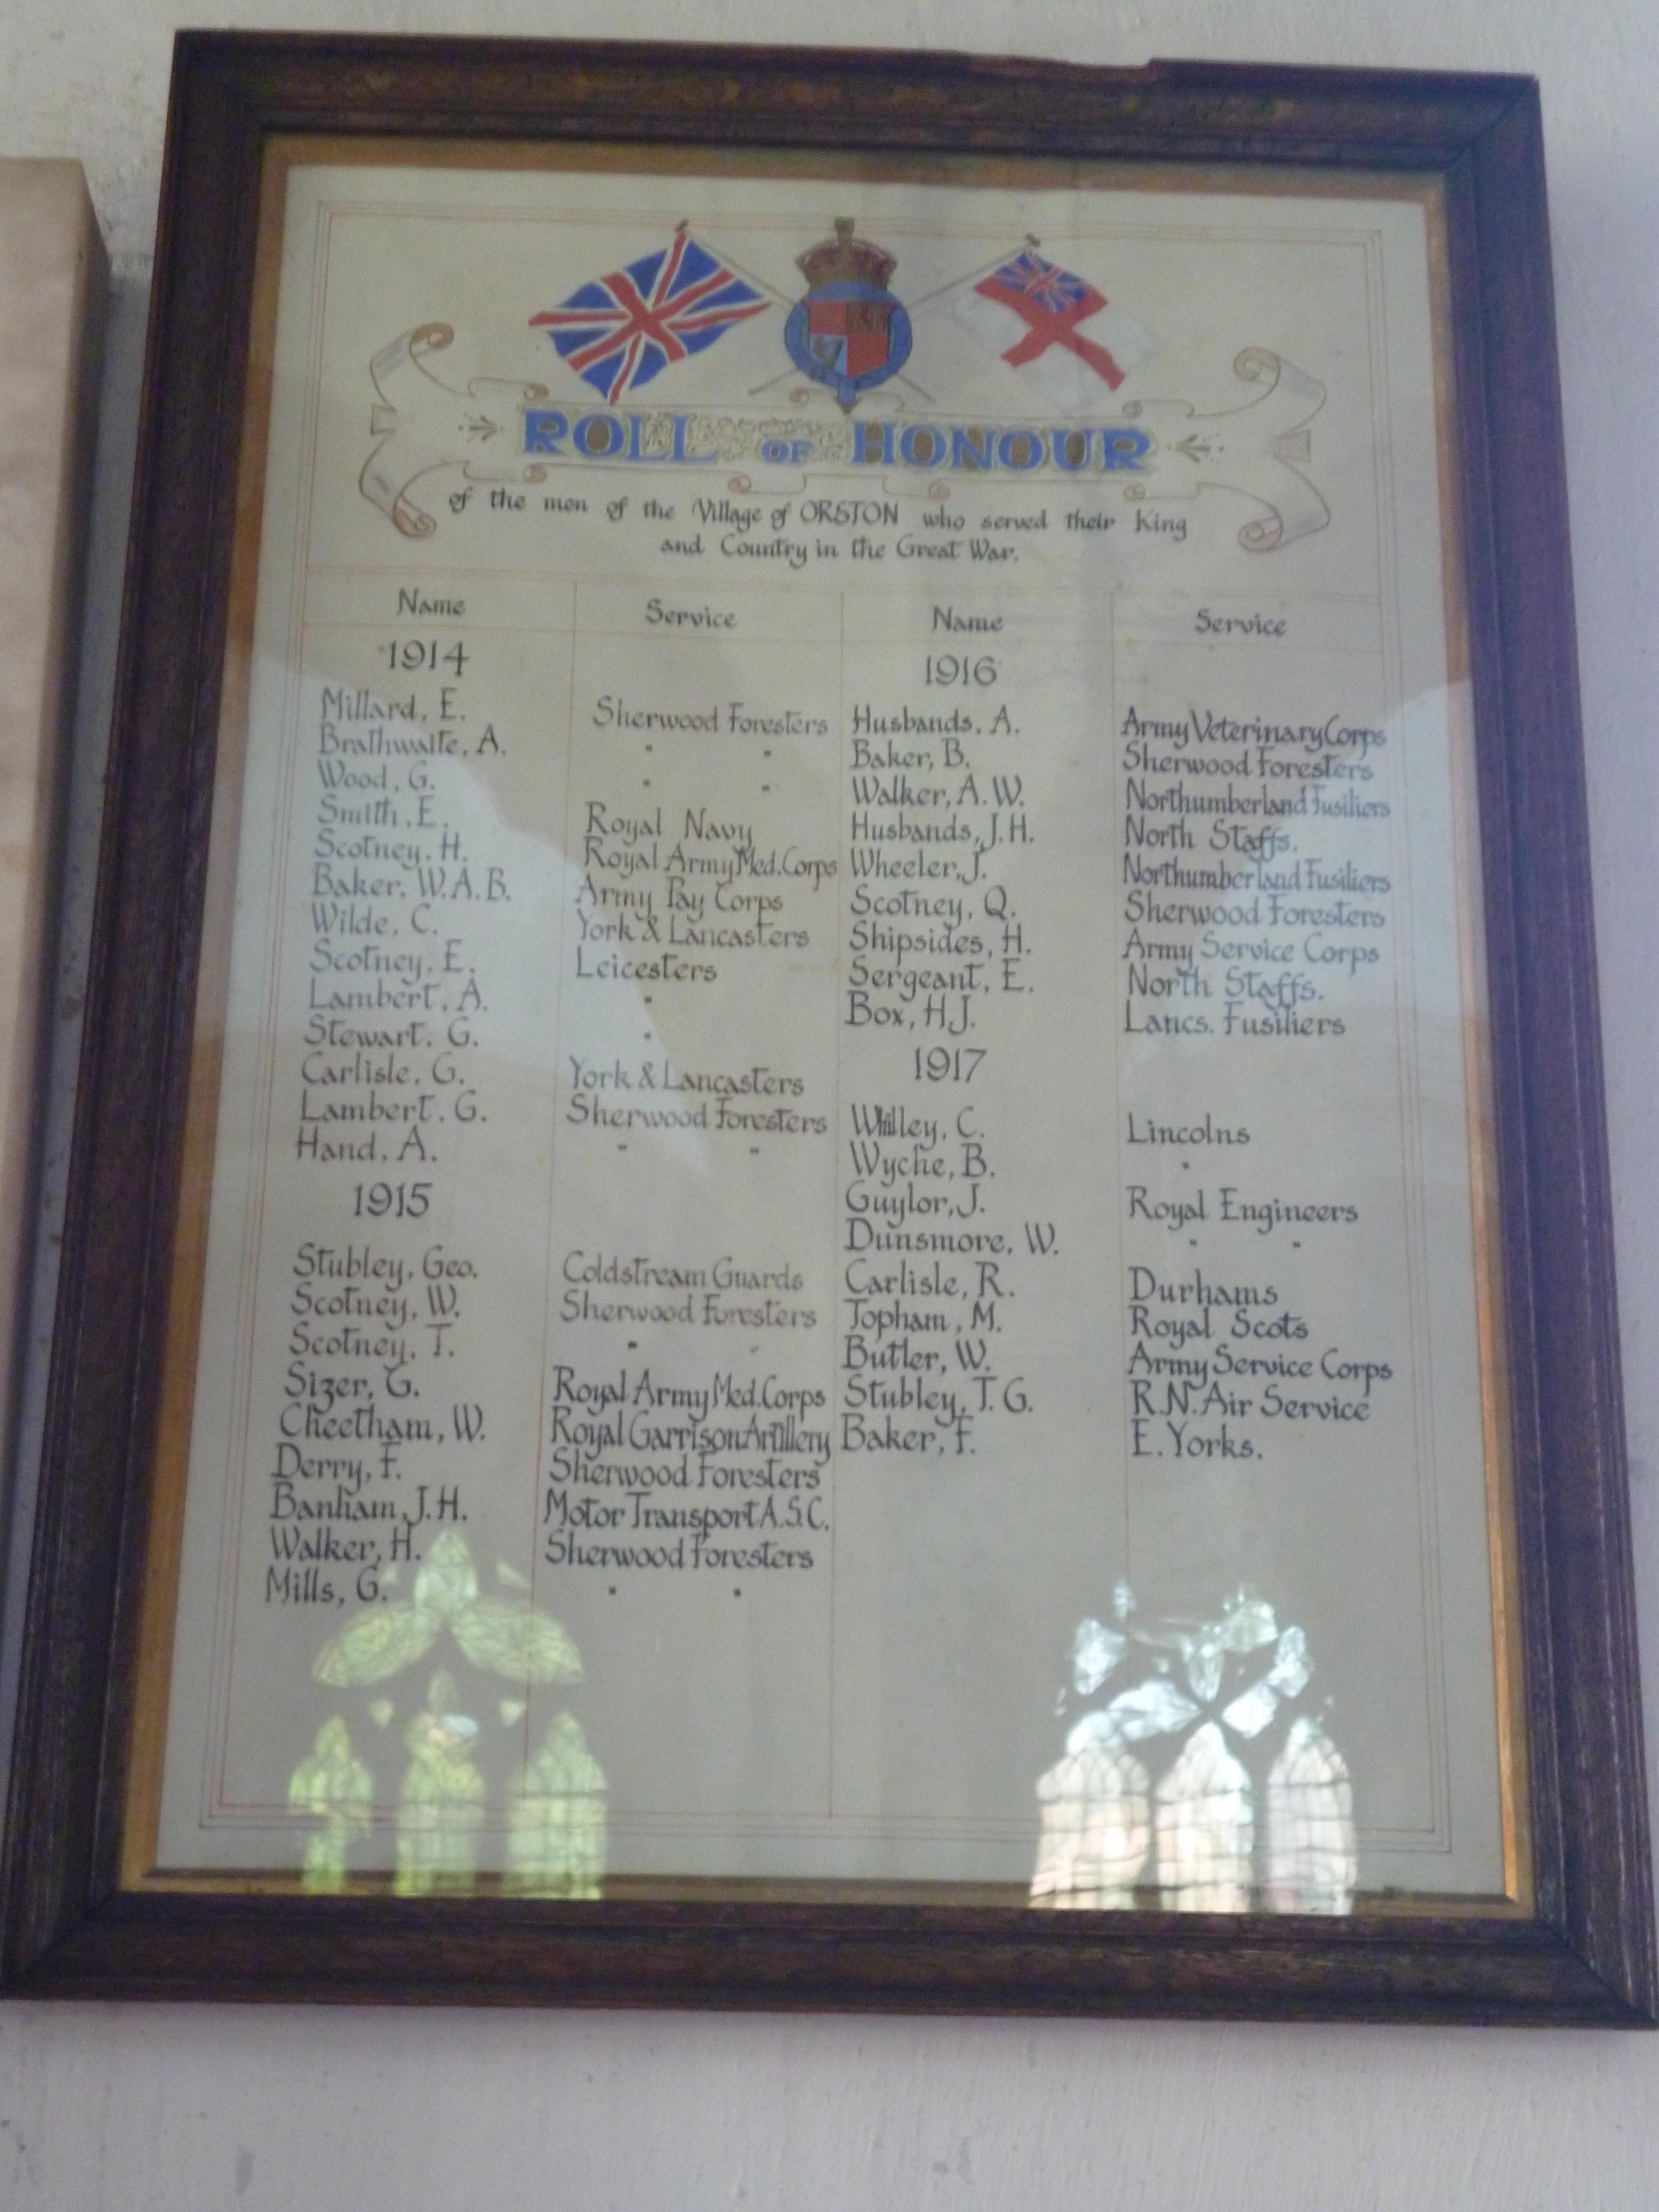 ROLL OF HONOUR
of the men of the Village of ORSTON who served their King
and Country in the Great War.
Name Service
1914
Millard, E. Sherwood Foresters
Brathwaite, A. " "
Wood, G. " "
Smith, E. Royal Navy
Scotney, H. Royal Army Med. Corps
Baker, W.A.B. Army Pay Corps
Wilde, C. York & Lancasters
Scotney, E. Leicesters
Lambert, A. "
Stewart, G. "
Carlisle, G. York & Lancasters
Lambert, G. Sherwood Foresters
Hand, A. " "
1915
Stubley, Geo. Coldstream Guards
Scotney, W. Sherwood Foresters
Scotney, T. " "
Sizer, G. Royal Army Med. Corps
Cheetham, W. Royal Garrison Artillery
Derry, F. Sherwood Foresters
Banham, J.H. Motor Transport A.S.C.
Walker, H. Sherwood Foresters
Mills, G. " "
Name Service
1916
Husbands, A. Army Veterinary Corps
Baker, B. Sherwood Foresters
Walker, A.W. Northumberland Fusiliers
Husbands, J.H. North Staffs.
Wheeler, J. Northumberland Fusiliers
Scotney, Q. Sherwood Foresters
Shipsides, H. Army Service Corps
Sergeant, E. North Staffs.
Box, H.J. Lancs. Fusiliers
1917
C. Lincolns
Wyche, B. "
Guylor, J. Royal Engineers
Dunsmore, W. " "
Carlisle, R. Durhams
Topham, M. Royal Scots
Butler, W. Army Service Corps
Stubley, T.G. R.N. Air Service
Baker, F. E. Yorks.